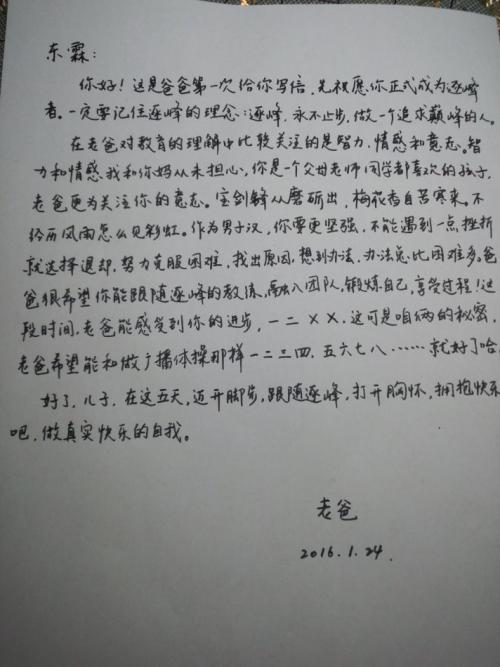 东霖：
你好！这是爸爸第一次给你写信，先祝愿你正式成为逐峰
者。一定要记住逐峰的理念：逐峰，永不止步，做一个追求巅峰的人。
在老爸对教育的理解中比较关注的是智力，情感和意志。智
力和情感我和你妈从未担心，你是一个父母老师同学都喜欢的孩子，
老爸更为关注你的意志。宝剑锋从磨砺出，梅花香自苦寒来。不
经历风雨怎么见彩虹。作为男子汉，你要更坚强，不能遇到一点挫折
就选择退却，努力克服困难，找出原因，想到办法，办法总比困难多。爸
爸很希望你能跟随逐峰的教练，融入团队，锻炼自己，享受过程！这
段时间，老爸能感受到你的进步，一二××，这可是咱俩的秘密，
老爸希望能和做广播体操那样一二三四，五六七八……就好了哈
好了，儿子，在这五天，迈开脚步，跟随逐峰，打开胸怀，拥抱快乐
吧，做真实快乐的自我。
老爸
2016.1.24.